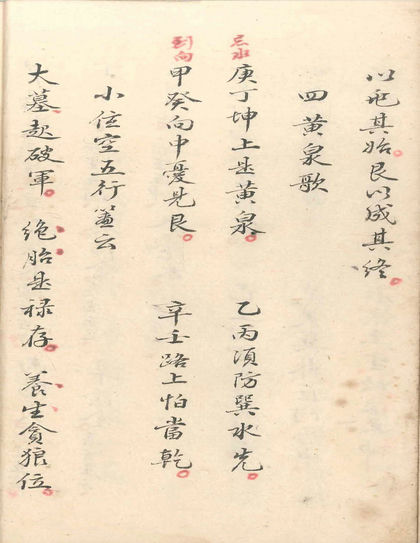 以屯其始。艮以成其終。
四黃泉歌
忌水
庚丁坤上是黃泉。乙丙須防巽水先。
到向
甲癸向中憂見艮。辛壬路上怕當乾。
小位空五行云
大墓起破軍。絶胎是禄存。養生貪狼位。